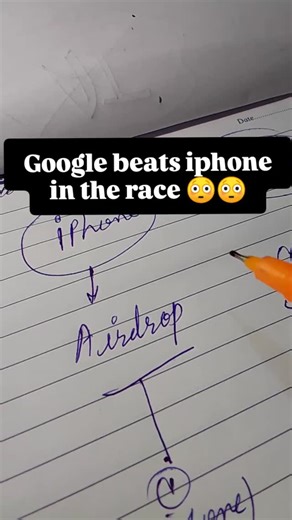 Date
Google beats iphone
in the race 😳😳
iPhone
Airdrop